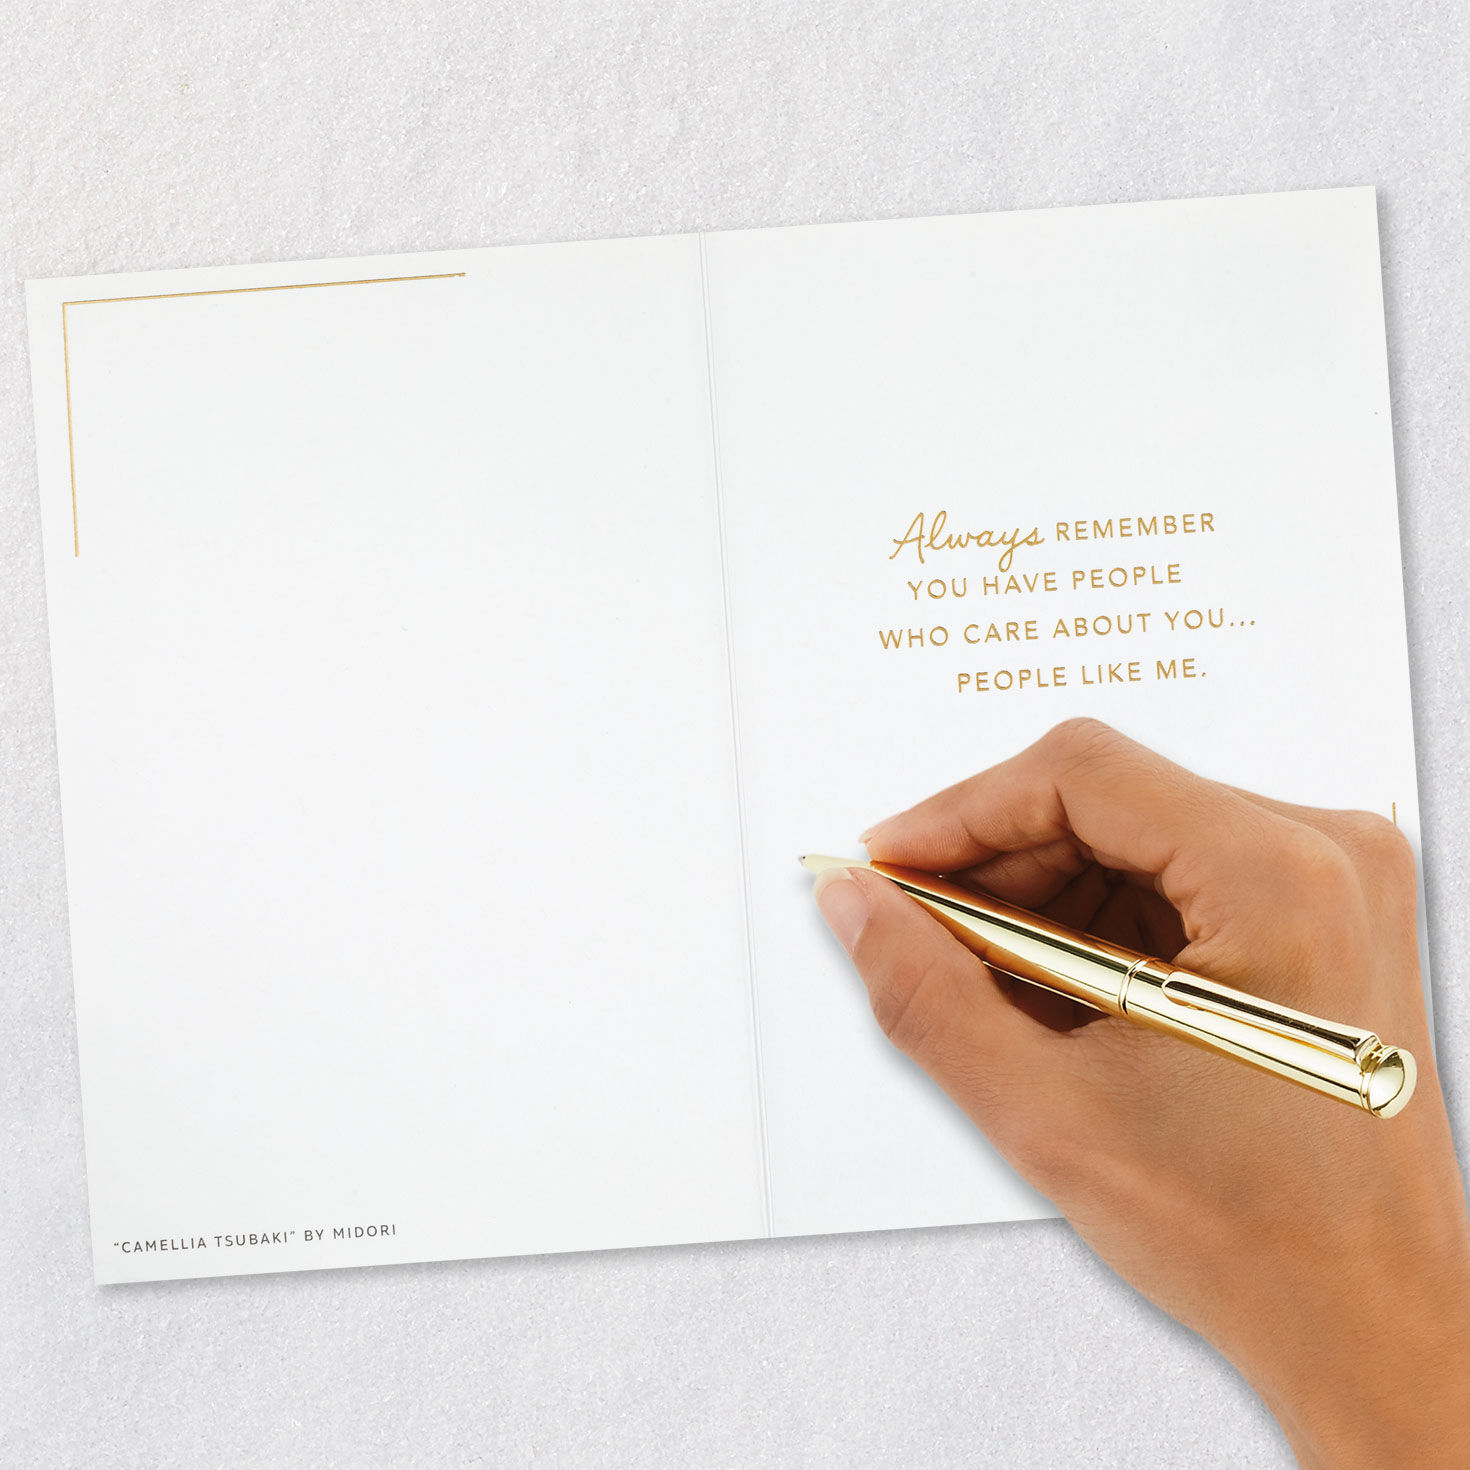 Always REMEMBER
YOU HAVE PEOPLE
WHO CARE ABOUT YOU...
PEOPLE LIKE ME.
“CAMELLIA TSUBAKI” BY MIDORI